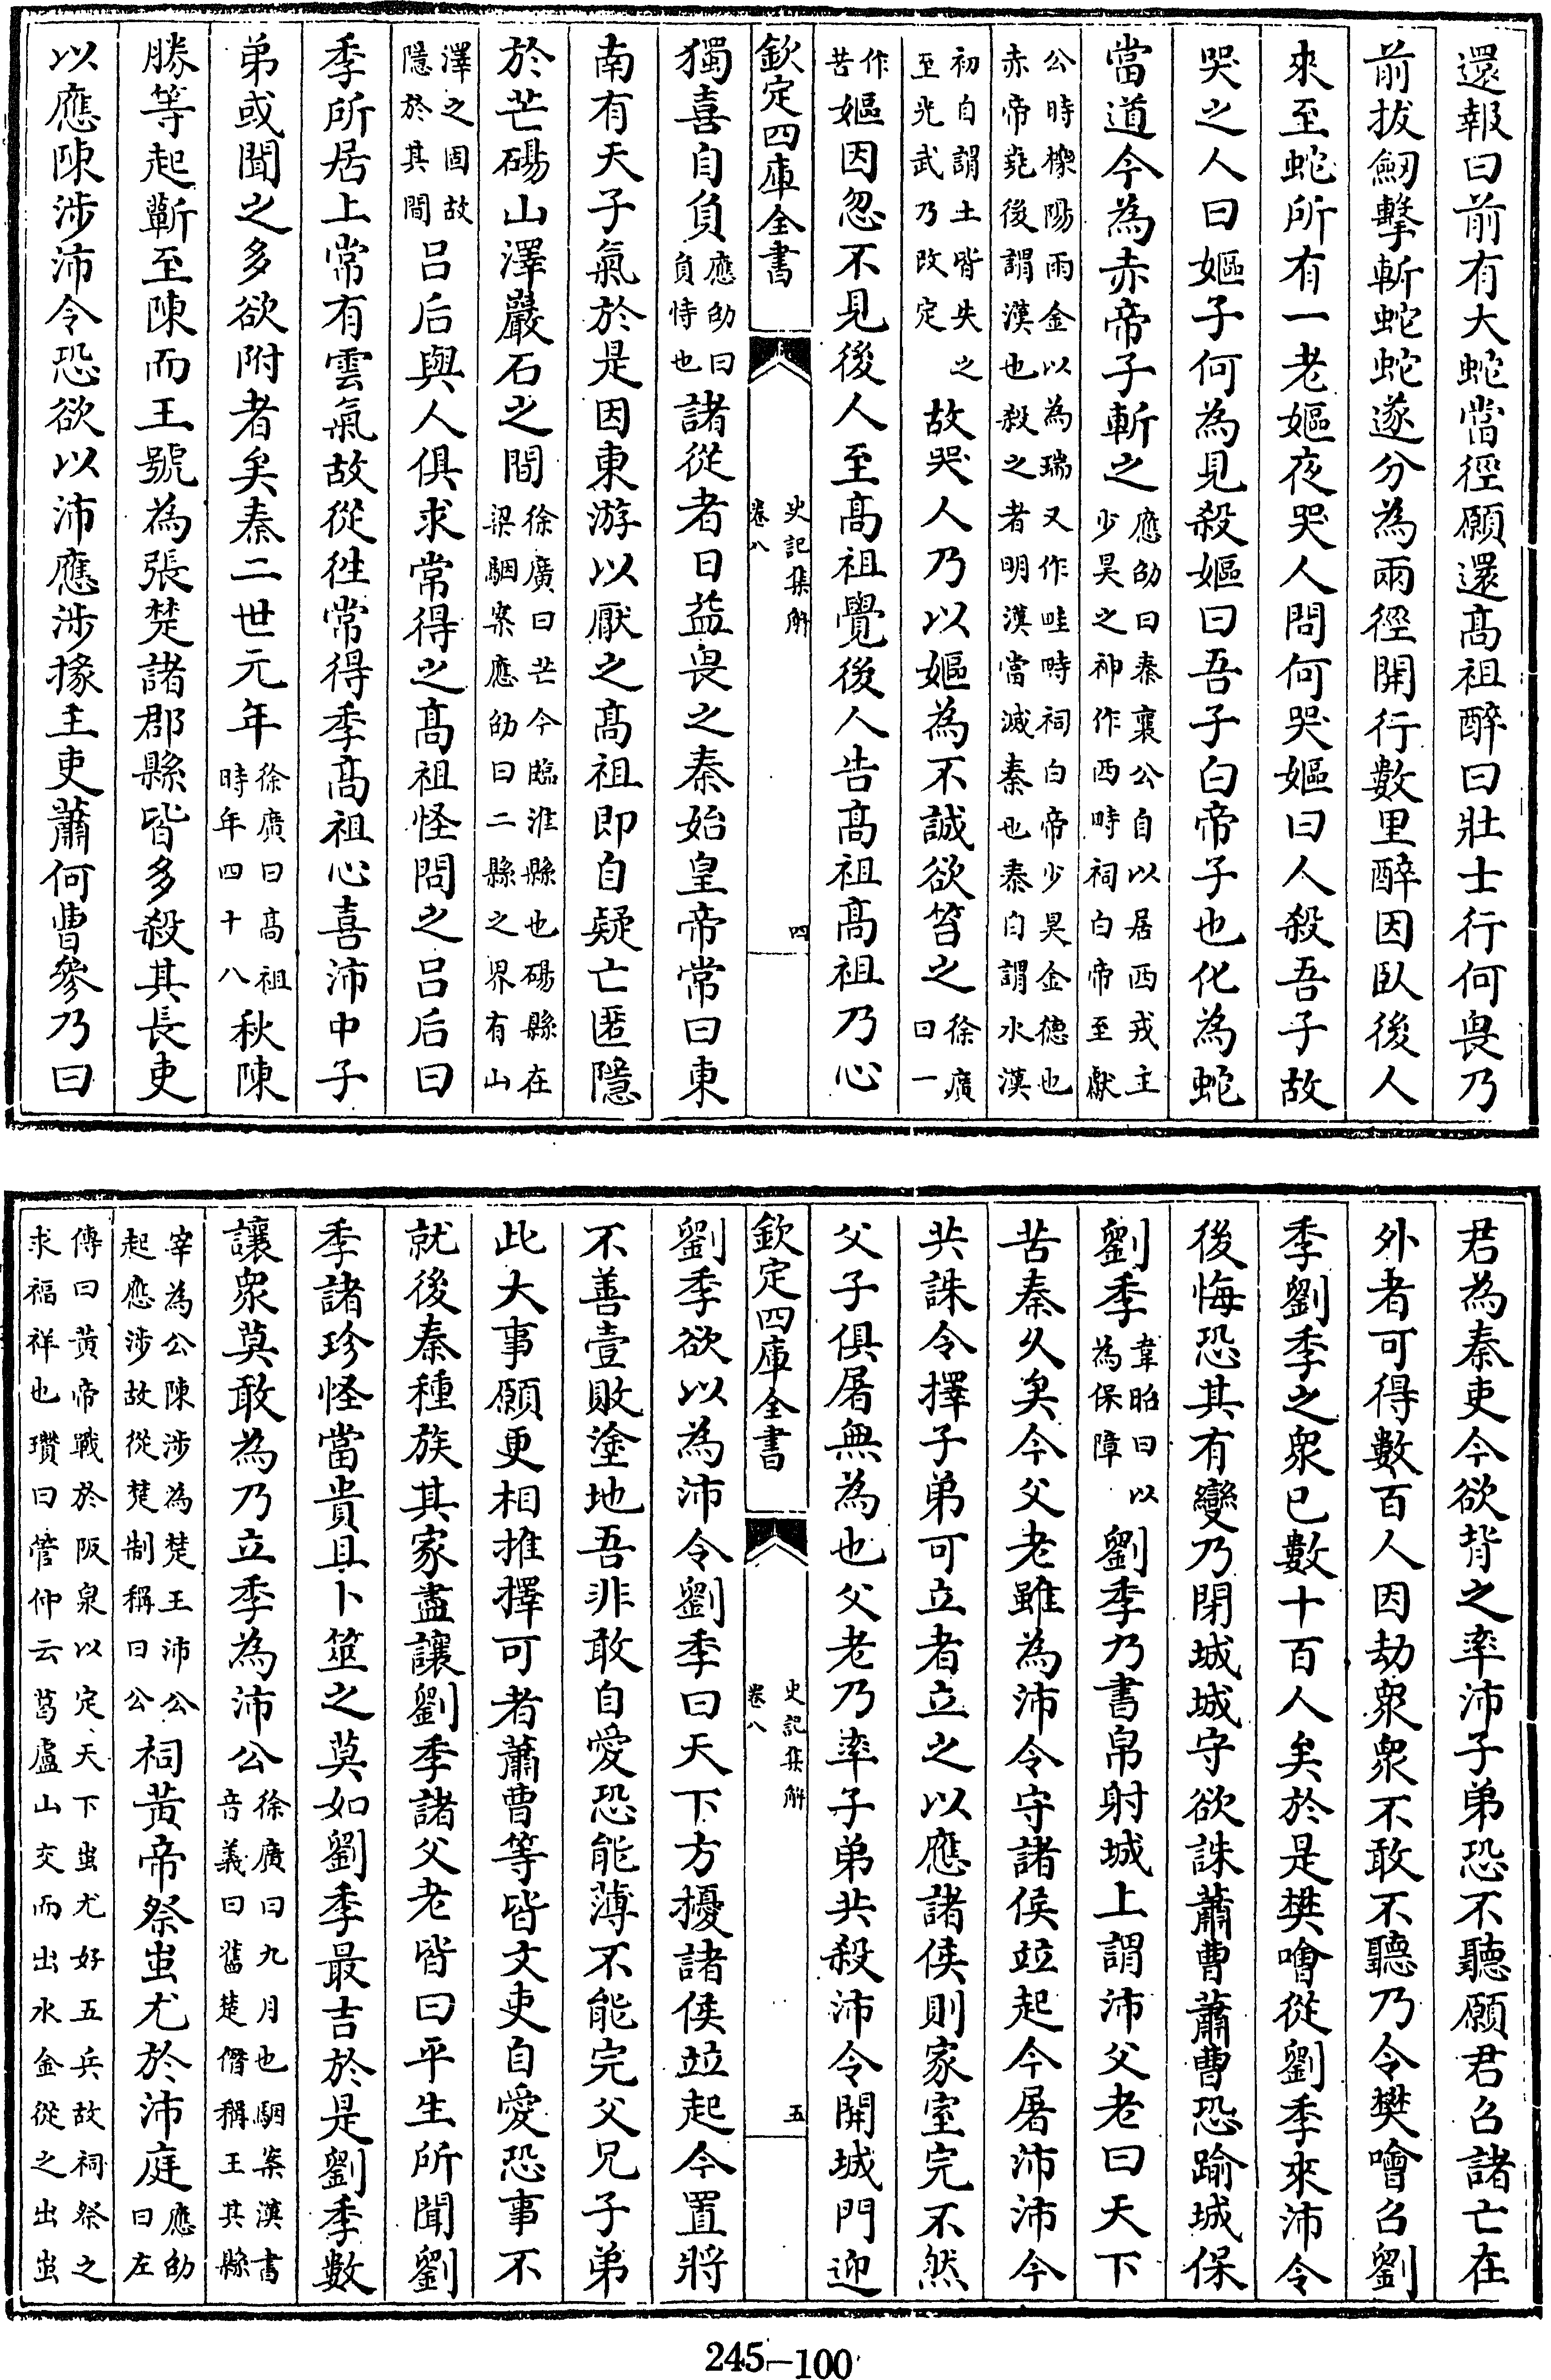 還報曰前有大蛇當徑願還高祖醉曰壯士行何畏乃
前拔劒擊斬蛇蛇遂分為兩徑開行數里醉因臥後人
來至蛇所有一老嫗夜哭人問何哭嫗曰人殺吾子故
哭之人曰嫗子何為見殺嫗曰吾子白帝子也化為蛇
當道今為赤帝子斬之應劭曰秦襄公自以居西戎主少昊之神作西畤祠白帝至獻
公時櫟陽雨金以為瑞又作畦畤祠白帝少昊金德也赤帝堯後謂漢也殺之者明漢當滅秦也秦自謂水漢
初自謂土皆失之至光武乃改定故哭人乃以嫗為不誠欲笞之徐廣曰一
作苦嫗因忽不見後人至高祖覺後人告高祖高祖乃心
欽定四庫全書 史記集解 卷八 四
獨喜自負應劭曰負恃也諸從者日益畏之秦始皇帝常曰東
南有天子氣於是因東游以厭之高祖即自疑亡匿隱
於芒碭山澤巖石之間徐廣曰芒今臨淮縣也碭縣在梁駰案應劭曰二縣之界有山
澤之固故隱於其間呂后與人俱求常得之高祖怪問之呂后曰
季所居上常有雲氣故從往常得季高祖心喜沛中子
弟或聞之多欲附者矣秦二世元年徐廣曰高祖時年四十八秋陳
勝等起蘄至陳而王號為張楚諸郡縣皆多殺其長吏
以應陳涉沛令恐欲以沛應涉掾主吏蕭何曹參乃曰
君為秦吏今欲背之率沛子弟恐不聽願君召諸亡在
外者可得數百人因劫衆衆不敢不聽乃令樊噲召劉
季劉季之衆已數十百人矣於是樊噲從劉季來沛令
後悔恐其有變乃閉城城守欲誅蕭曹蕭曹恐踰城保
劉季韋昭曰以為保障劉季乃書帛射城上謂沛父老曰天下
苦秦久矣今父老雖為沛令守諸侯竝起今屠沛沛今
共誅令擇子弟可立者立之以應諸侯則家室完不然
父子俱屠無為也父老乃率子弟共殺沛令開城門迎
欽定四庫全書 史記集解 卷八 五
劉季欲以為沛令劉季曰天下方擾諸侯竝起今置將
不善壹敗塗地吾非敢自愛恐能薄不能完父兄子弟
此大事願更相推擇可者蕭曹等皆文吏自愛恐事不
就後秦種族其家盡讓劉季諸父老皆曰平生所聞劉
季諸珍怪當貴且卜筮之莫如劉季最吉於是劉季數
讓衆莫敢為乃立季為沛公徐廣曰九月也駰案漢書音義曰舊楚僭稱王其縣
宰為公陳涉為楚王沛公起應涉故從楚制稱曰公祠黃帝祭蚩尤於沛庭應劭曰左
傳曰黃帝戰於阪泉以定天下蚩尤好五兵故祠祭之求福祥也瓚曰管仲云葛盧山交而出水金從之出蚩
245—100